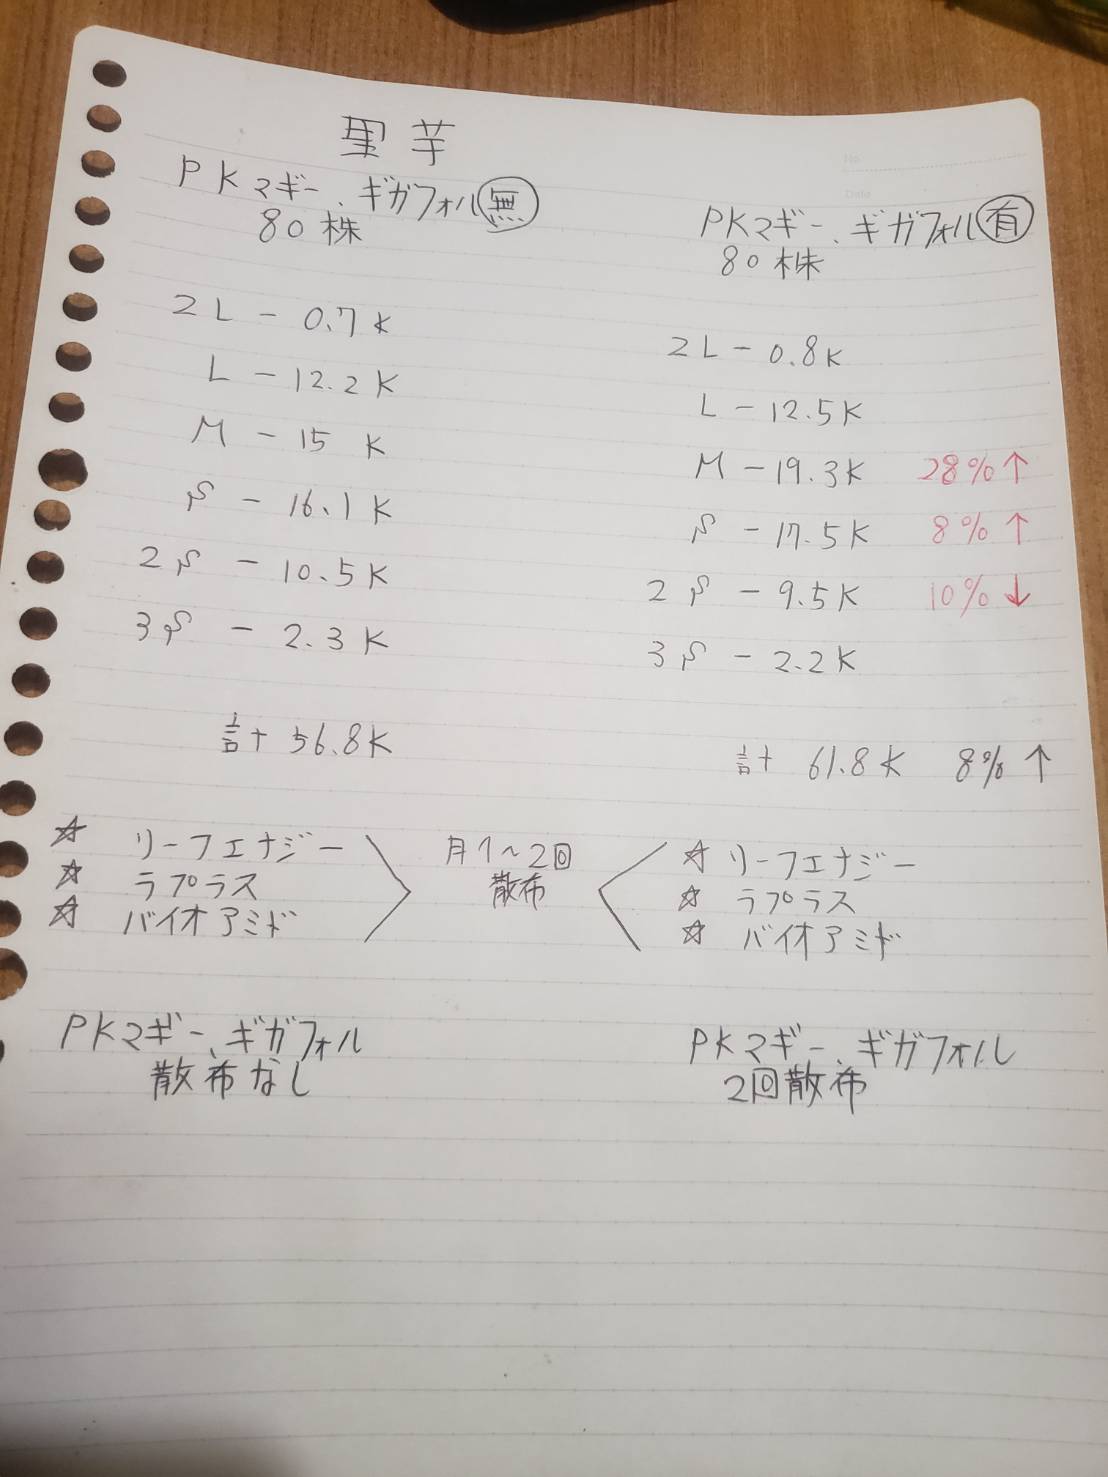 里芋
PKマギー、ギガフォル無
80株
2L - 0.7K
L - 12.2K
M - 15 K
S - 16.1K
2S - 10.5K
3S - 2.3K
計 56.8K
☆ リーフエナジー
☆ ラプラス
☆ バイオアミド
PKマギー、ギガフォル
散布なし
月1〜2回
散布
No.
Date
PKマギー、ギガフォル有
80株
2L - 0.8K
L - 12.5K
M - 19.3K 28%↑
S - 17.5K 8%↑
2S - 9.5K 10%↓
3S - 2.2K
計 61.8K 8%↑
☆ リーフエナジー
☆ ラプラス
☆ バイオアミド
PKマギー、ギガフォル
2回散布